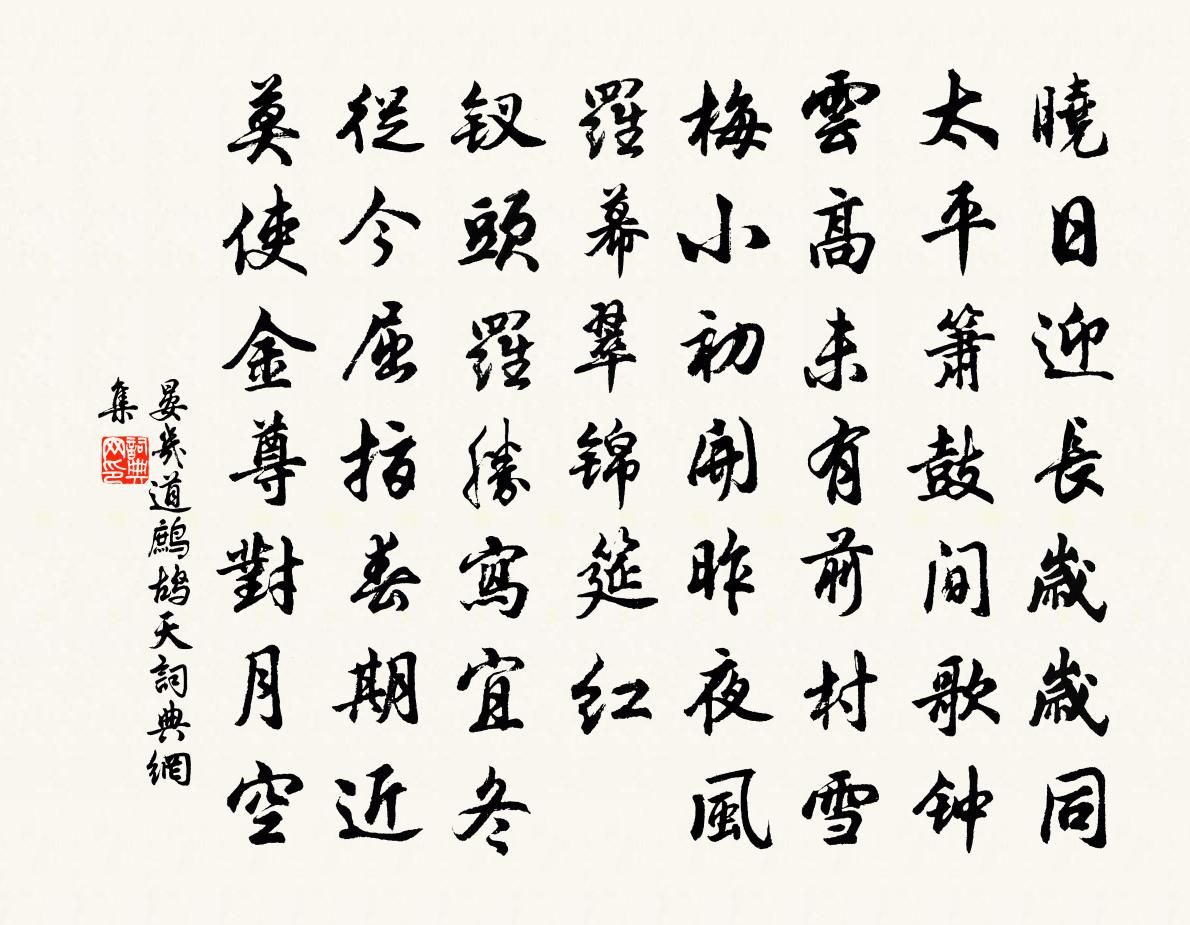 曉日迎長歲歲同
太平簫鼓間歌钟
雲高未有前村雪
梅小初開昨夜風
羅幕翠锦筵红
钗頭羅勝寫宜冬
從今屈指春期近
莫使金尊對月空
晏幾道鷓鴣天詞典網
集
詞典网印